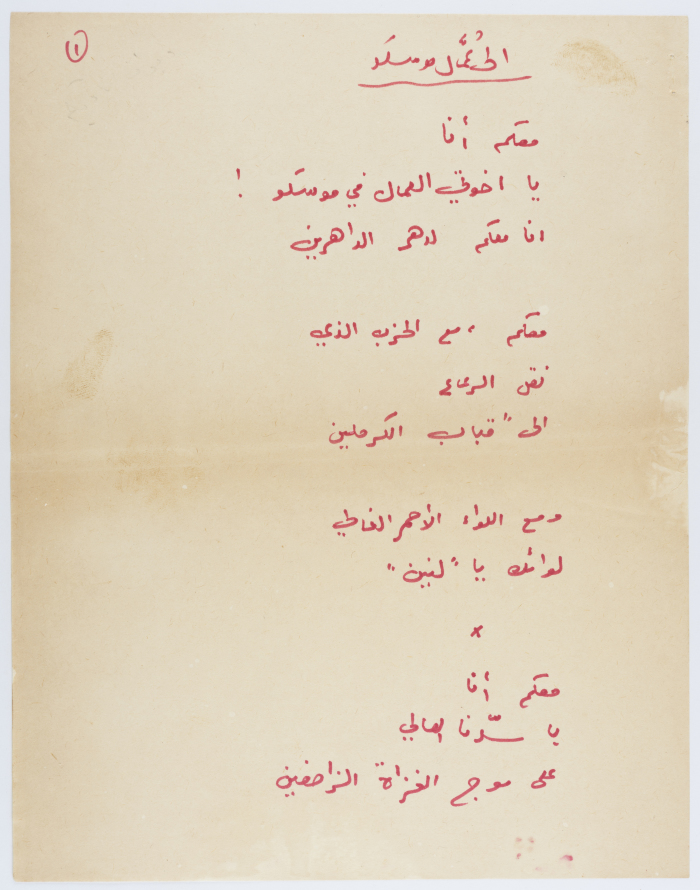 (١)
الى عُمَّال موسكو
معكم أنا
يا اخوتي العمال في موسكو !
انا معكم لدهر الداهرين
معكم ، مع الحزب الذي
نقل الرعاع
الى " قباب الكرملين
ومع اللواء الاحمر الغالي
لوائك يا " لنين "
×
معكم أنا
يا سدّنا العالي
على موج الغزاة الزاحفين